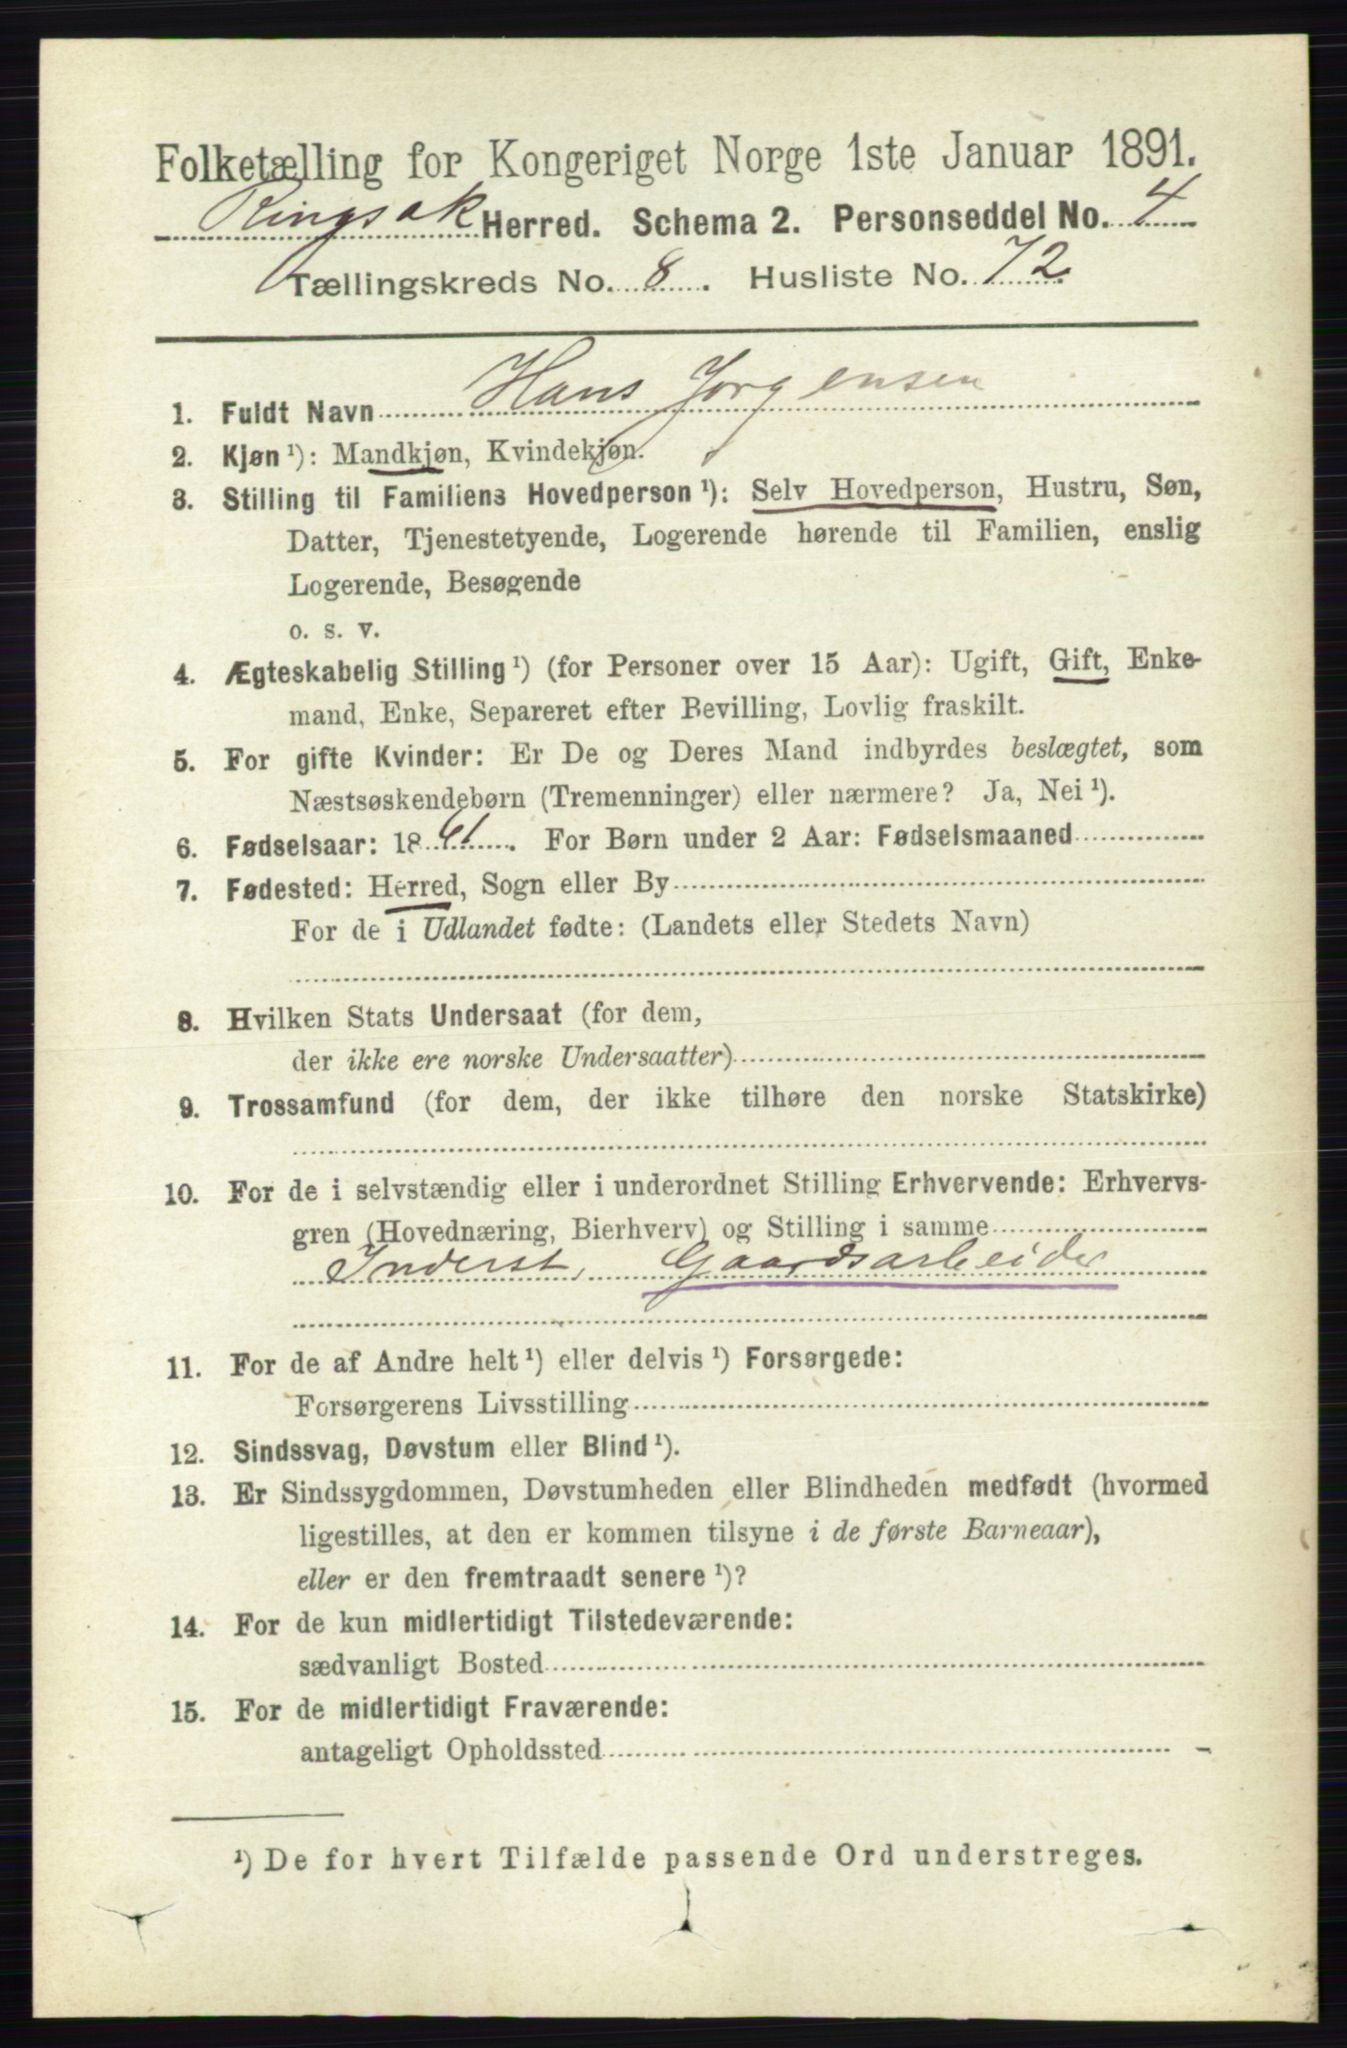 Folketælling for Kongeriget Norge 1ste Januar 1891.
Ringsak Herred. Schema 2. Personseddel No. 4
Tællingskreds No. 8. Husliste No. 72.
1. Fuldt Navn Hans Jorgensen
2. Kjøn ¹): Mandkjøn, Kvindekjøn.
3. Stilling til Familiens Hovedperson ¹): Selv Hovedperson, Hustru, Søn,
Datter, Tjenestetyende, Logerende hørende til Familien, enslig
Logerende, Besøgende
o. s. v.
4. Ægteskabelig Stilling ¹) (for Personer over 15 Aar): Ugift, Gift, Enke-
mand, Enke, Separeret efter Bevilling, Lovlig fraskilt.
5. For gifte Kvinder: Er De og Deres Mand indbyrdes beslægtet, som
Næstsøskendebørn (Tremenninger) eller nærmere? Ja, Nei ¹).
6. Fødselsaar: 1861. For Børn under 2 Aar: Fødselsmaaned
7. Fødested: Herred, Sogn eller By
For de i Udlandet fødte: (Landets eller Stedets Navn)
8. Hvilken Stats Undersaat (for dem,
der ikke ere norske Undersaatter)
9. Trossamfund (for dem, der ikke tilhøre den norske Statskirke)
10. For de i selvstændig eller i underordnet Stilling Erhvervende: Erhvervs-
gren (Hovednæring, Bierhverv) og Stilling i samme
Inderst, Gaardsarbeider
11. For de af Andre helt ¹) eller delvis ¹) Forsørgede:
Forsørgerens Livsstilling
12. Sindssvag, Døvstum eller Blind ¹).
13. Er Sindssygdommen, Døvstumheden eller Blindheden medfødt (hvormed
ligestilles, at den er kommen tilsyne i de første Barneaar),
eller er den fremtraadt senere ¹)?
14. For de kun midlertidigt Tilstedeværende:
sædvanligt Bosted
15. For de midlertidigt Fraværende:
antageligt Opholdssted
¹) De for hvert Tilfælde passende Ord understreges.